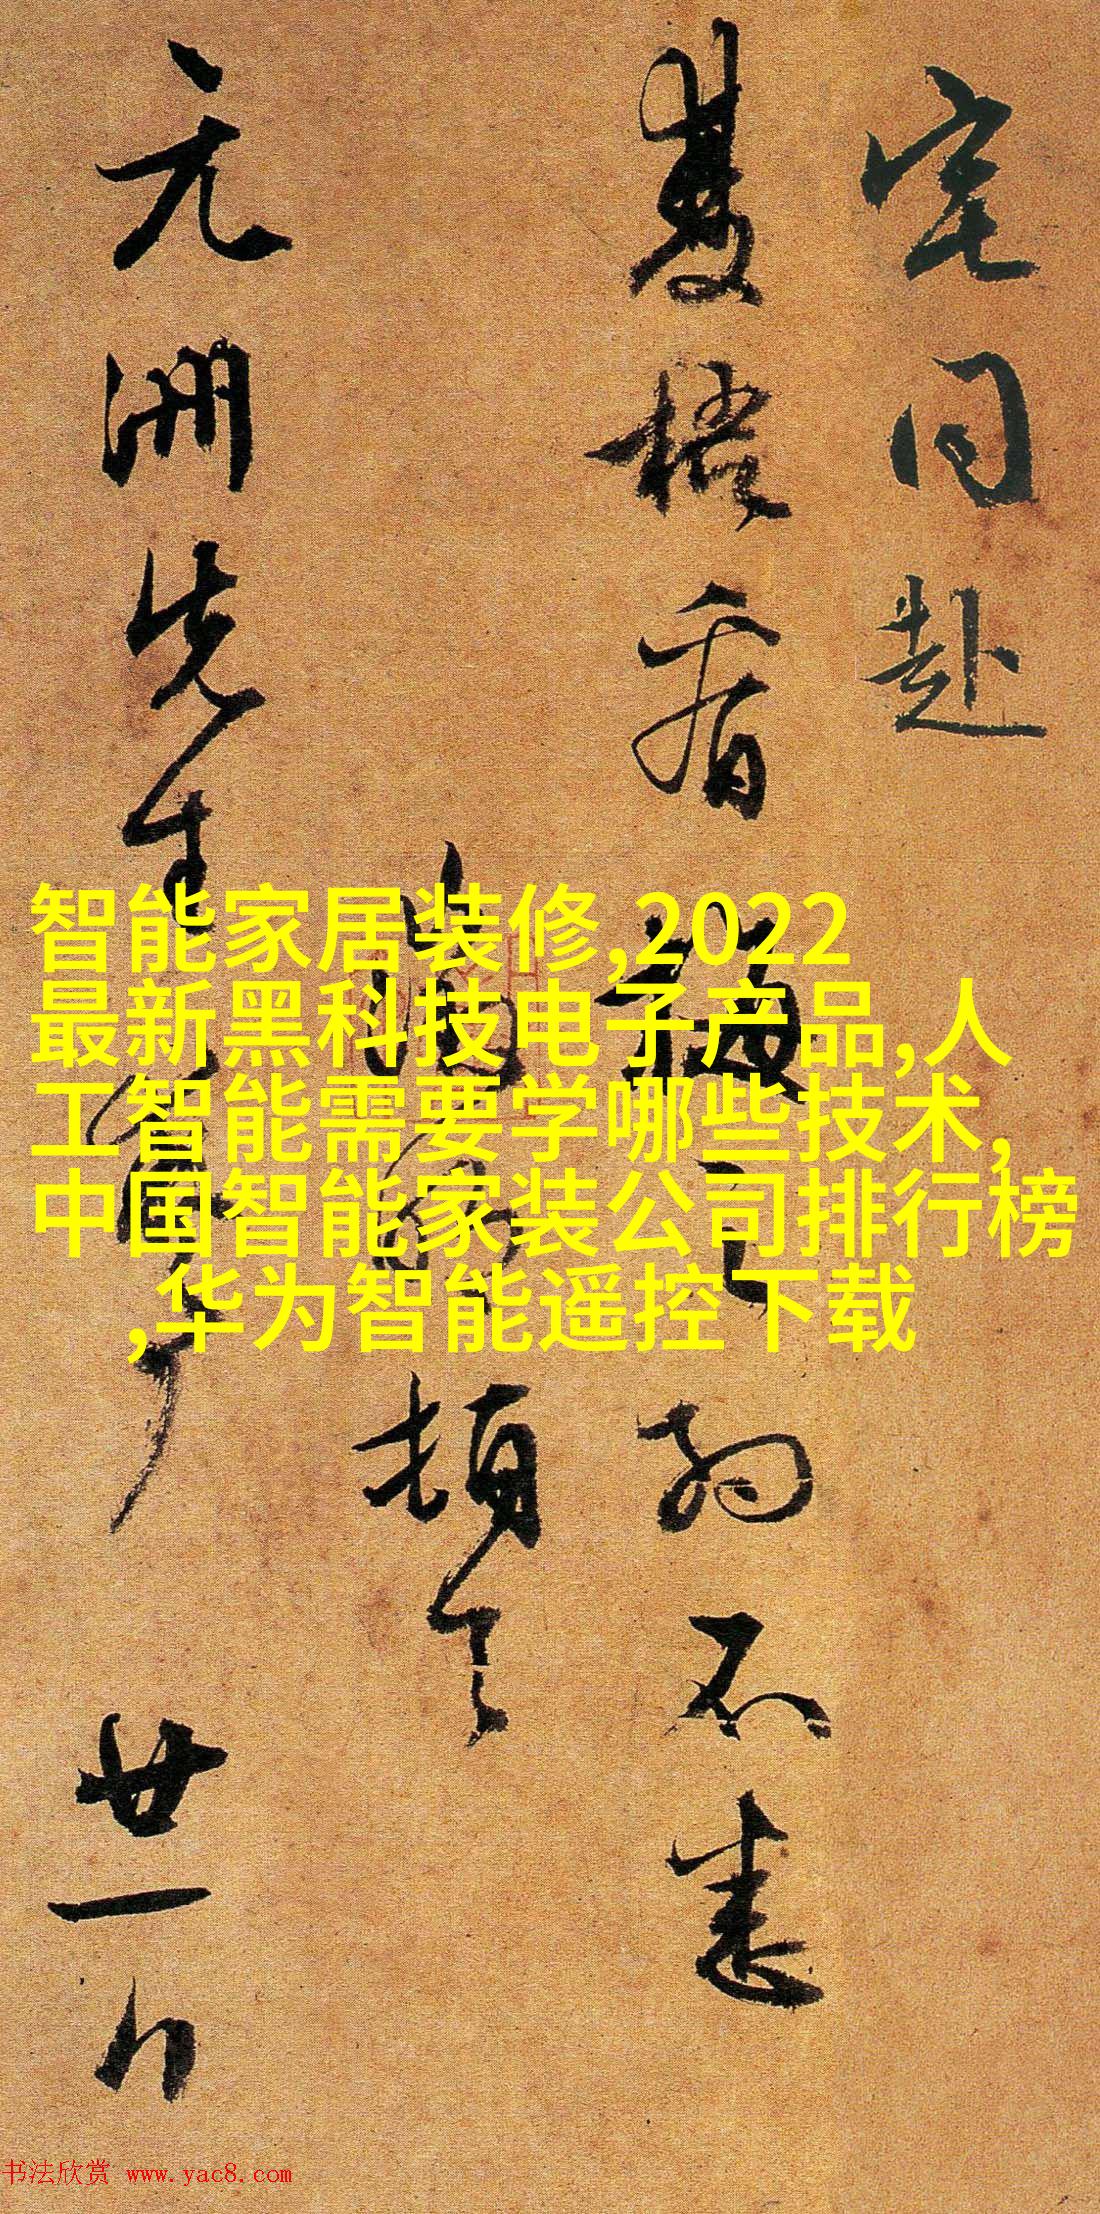 宅同赴
雙梧看梅之約不悉
頓首
元洲先生
廿一日
智能家居装修,2022
最新黑科技电子产品,人
工智能需要学哪些技术,
中国智能家装公司排行榜
,华为智能遥控下载
书法欣赏 www.yac8.com